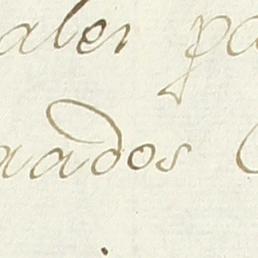 ales pa
aados C